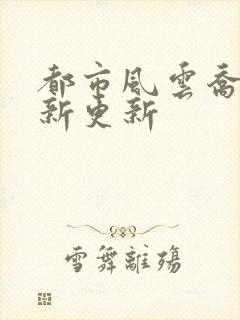 都市風雲喬
新更新
雪舞離殤